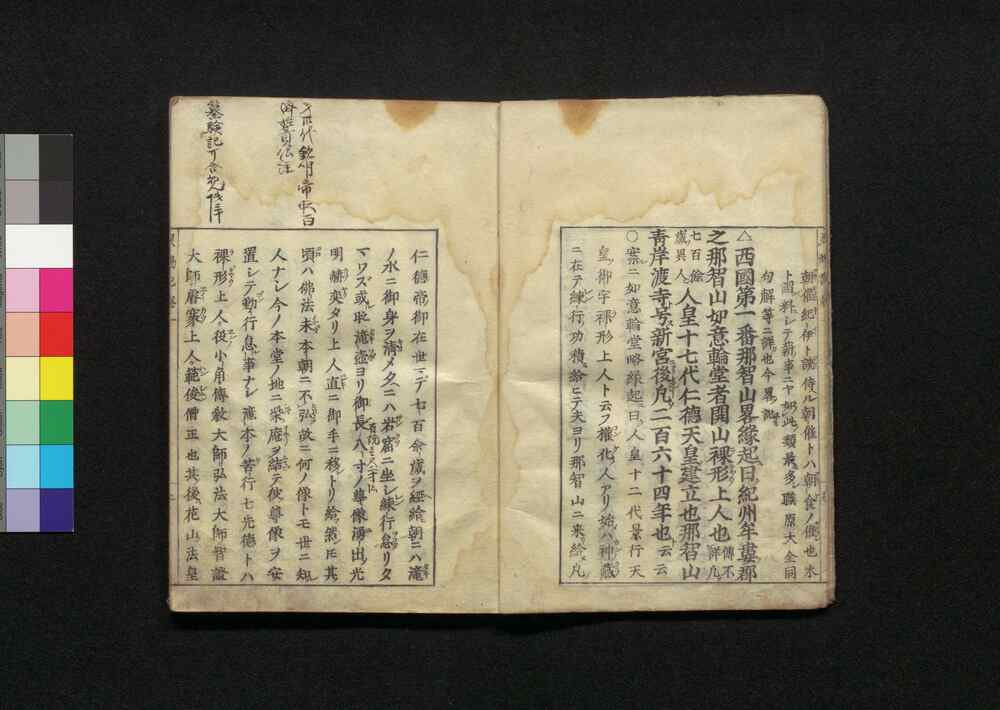 朝催紀ノ伊ト談侍ル朝催トハ朝食ノ儀也氷
ト圖料シテ新事ニヤ如此類最多職原大全同
句解等ニ課也今畧ス
△西國第一番那智山畧縁起曰紀州牟婁郡
之那智山如意輪堂者開山裸形上人也傳不詳凡
七百餘歳異人人皇十七代仁德天皇建立也那智山
靑岸渡寺号新宮後凡二百六十四年也云云
○案ニ如意輪堂略縁起曰人皇十二代景行天
皇御宇裸形上人ト云フ權化人アリ始ハ神藏
ニ在テ練行功積給ヒテ夫ヨリ那智山ニ來給凡
仁德帝御在世マデ七百余歳ヲ經給朝ニハ滝
ノ水ニ御身ヲ清メタニハ岩窟ニ坐シ練行怠リタ
マワズ或時滝壺ヨリ御長八寸ノ尊像湧出光
明赫奕タリ上人直ニ御手ニ移トリ給然ニ其
頃ハ佛法未本朝ニ不弘故ニ何ノ像トモ世ニ知
人ナシ今ノ本堂ノ地ニ柴庵ヲ結テ彼尊像ヲ安
置シテ勤行息事ナシ滝本ノ苦行七先德トハ
裸形上人役小角傳敎大師弘法大師智證
大師叡豪上人範俊僧正也其後花山法皇